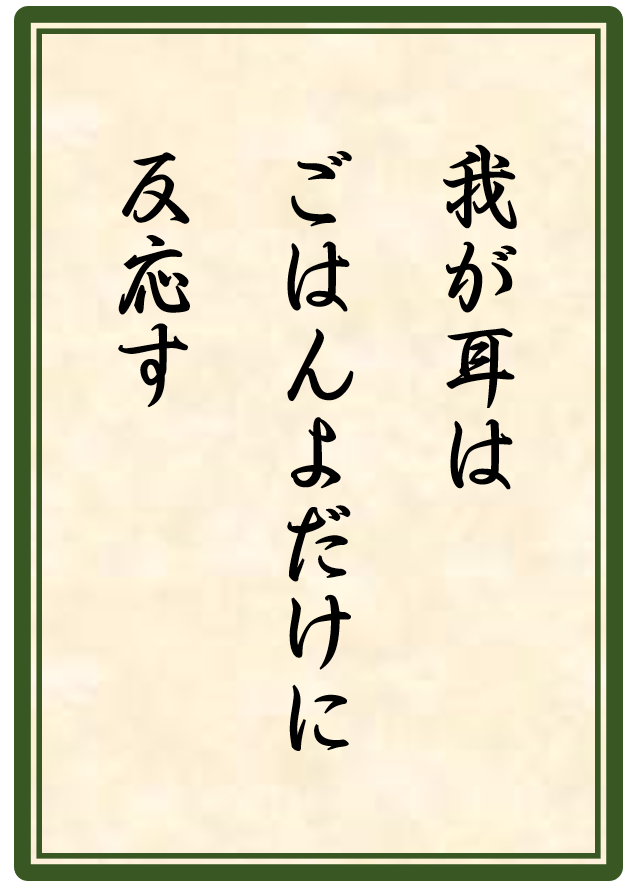 我が耳は
ごはんよだけに
反応す